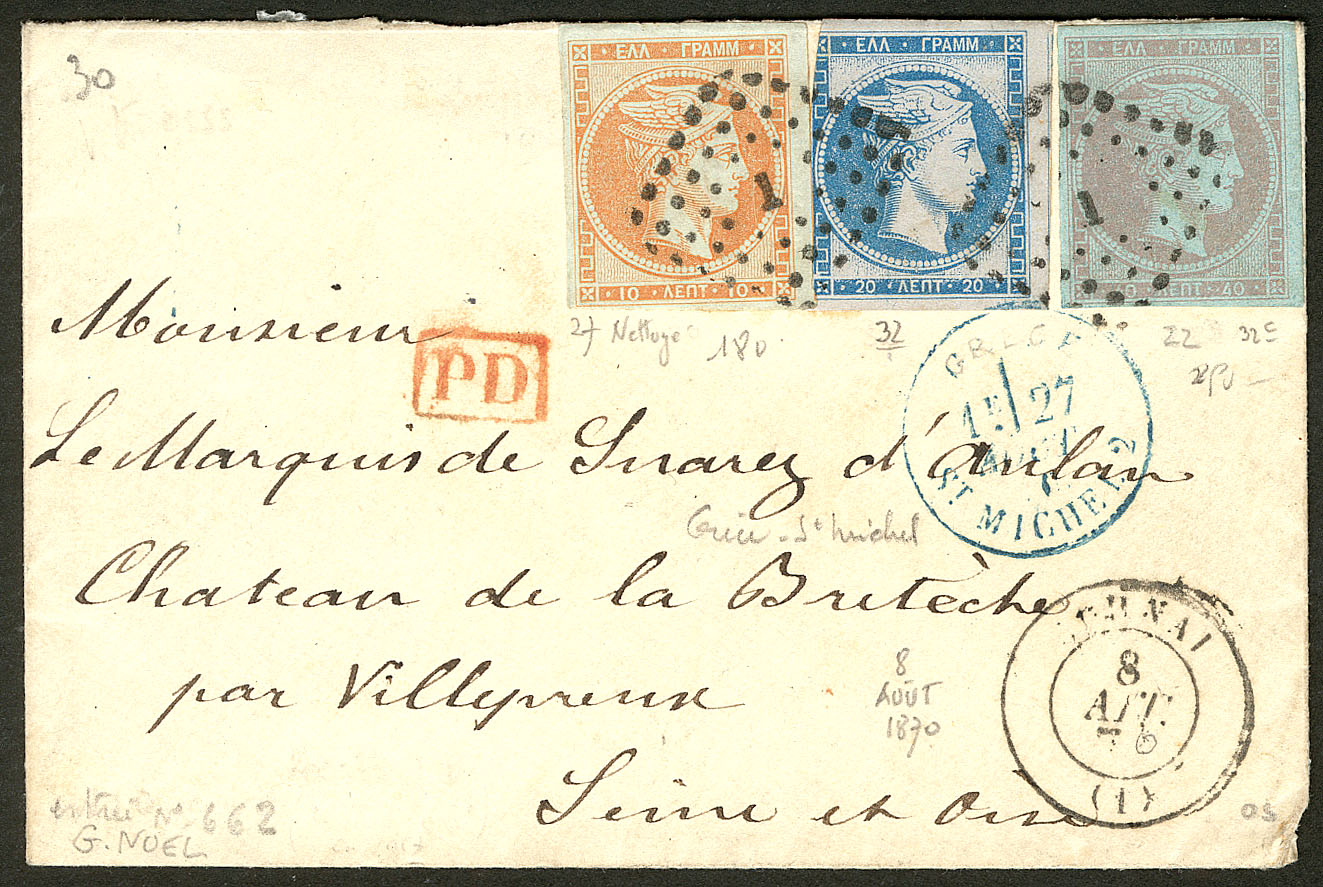 30
ΕΛΛ · ΓΡΑΜΜ
1
10 · ΛΕΠΤ · 10
ΕΛΛ · ΓΡΑΜΜ
20 · ΛΕΠΤ · 20
ΕΛΛ · ΓΡΑΜΜ
1
· ΛΕΠΤ · 40
27 Nettoyé 180
32
22 32c
Monsieur
PD
GRECE
1E 27
AOUT
ST MICHEL 2
Le Marquis de Suarez d'Aulan
Grèce - St michel
Chateau de la Bretèche
8
AOUT
1870
par Villepreux
8
ΑΥΓ.
70
(1)
Seine et Oise
Nº 662
G. NOEL